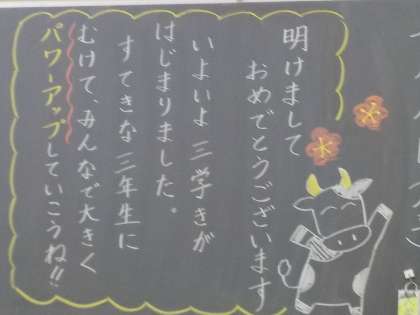 明けまして
おめでとうございます
いよいよ三学きが
はじまりました。
すてきな三年生に
むけて、みんなで大きく
パワーアップしていこうね!!